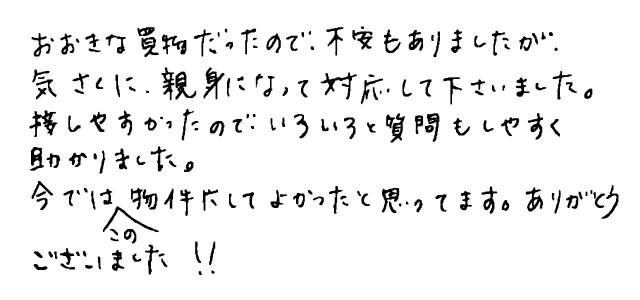 おおきな買物だったので、不安もありましたが、
気さくに、親身になって対応して下さいました。
接しやすかったので、いろいろと質問もしやすく
助かりました。
今ではこの物件にしてよかったと思ってます。ありがとう
ございました!!